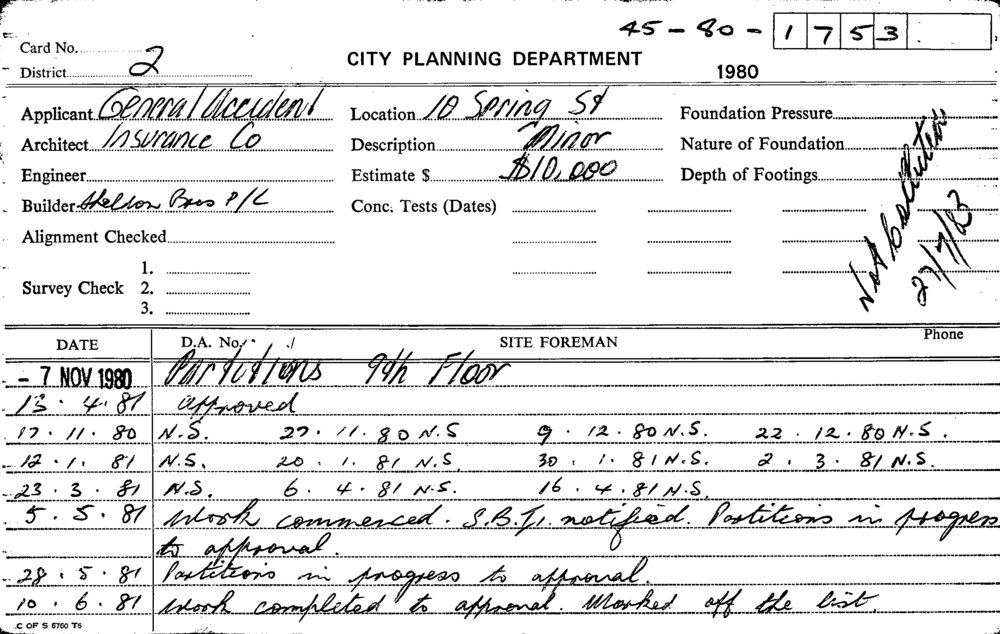 45-80-1753
Card No. 2
CITY PLANNING DEPARTMENT
District
1980
Applicant General Accident Location 10 Spring St Foundation Pressure
Architect Insurance Co Description Minor Nature of Foundation
Engineer Estimate $ $10,000 Depth of Footings
Builder Sheldon Bros P/L Conc. Tests (Dates)
Alignment Checked
Not
27/7/83
1.
Survey Check 2.
3.
DATE D.A. No. SITE FOREMAN Phone
- 7 NOV 1980 Partitions 9th Floor
13.4.81 approved
17.11.80 N.S. 27.11.80 N.S 9.12.80 N.S. 22.12.80 N.S.
12.1.81 N.S. 20.1.81 N.S. 30.1.81 N.S. 2.3.81 N.S.
23.3.81 N.S. 6.4.81 N.S. 16.4.81 N.S.
5.5.81 Work commenced. S.B.I. notified. Partitions in progress
to approval.
28.5.81 Partitions in progress to approval.
10.6.81 Work completed to approval. Marked off the list.
C OF S 6760 T6